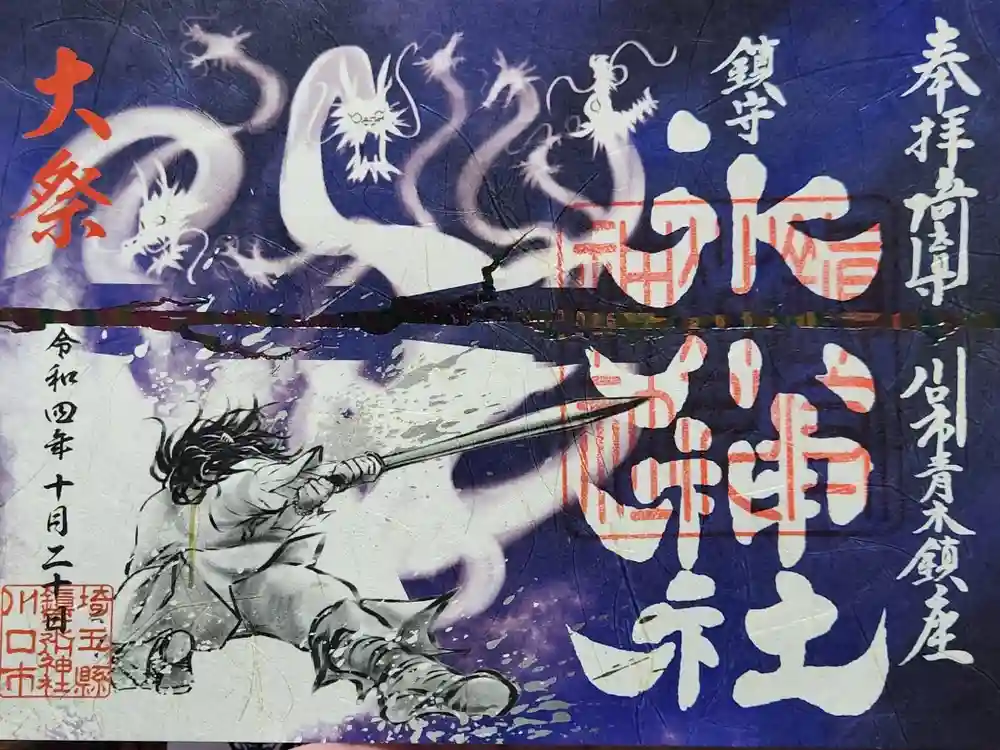 奉拝 埼玉県 川口市青木鎮座
鎮守
氷川神社
大祭
令和四年十月二十日
埼玉縣
鎮守氷川神社
川口市